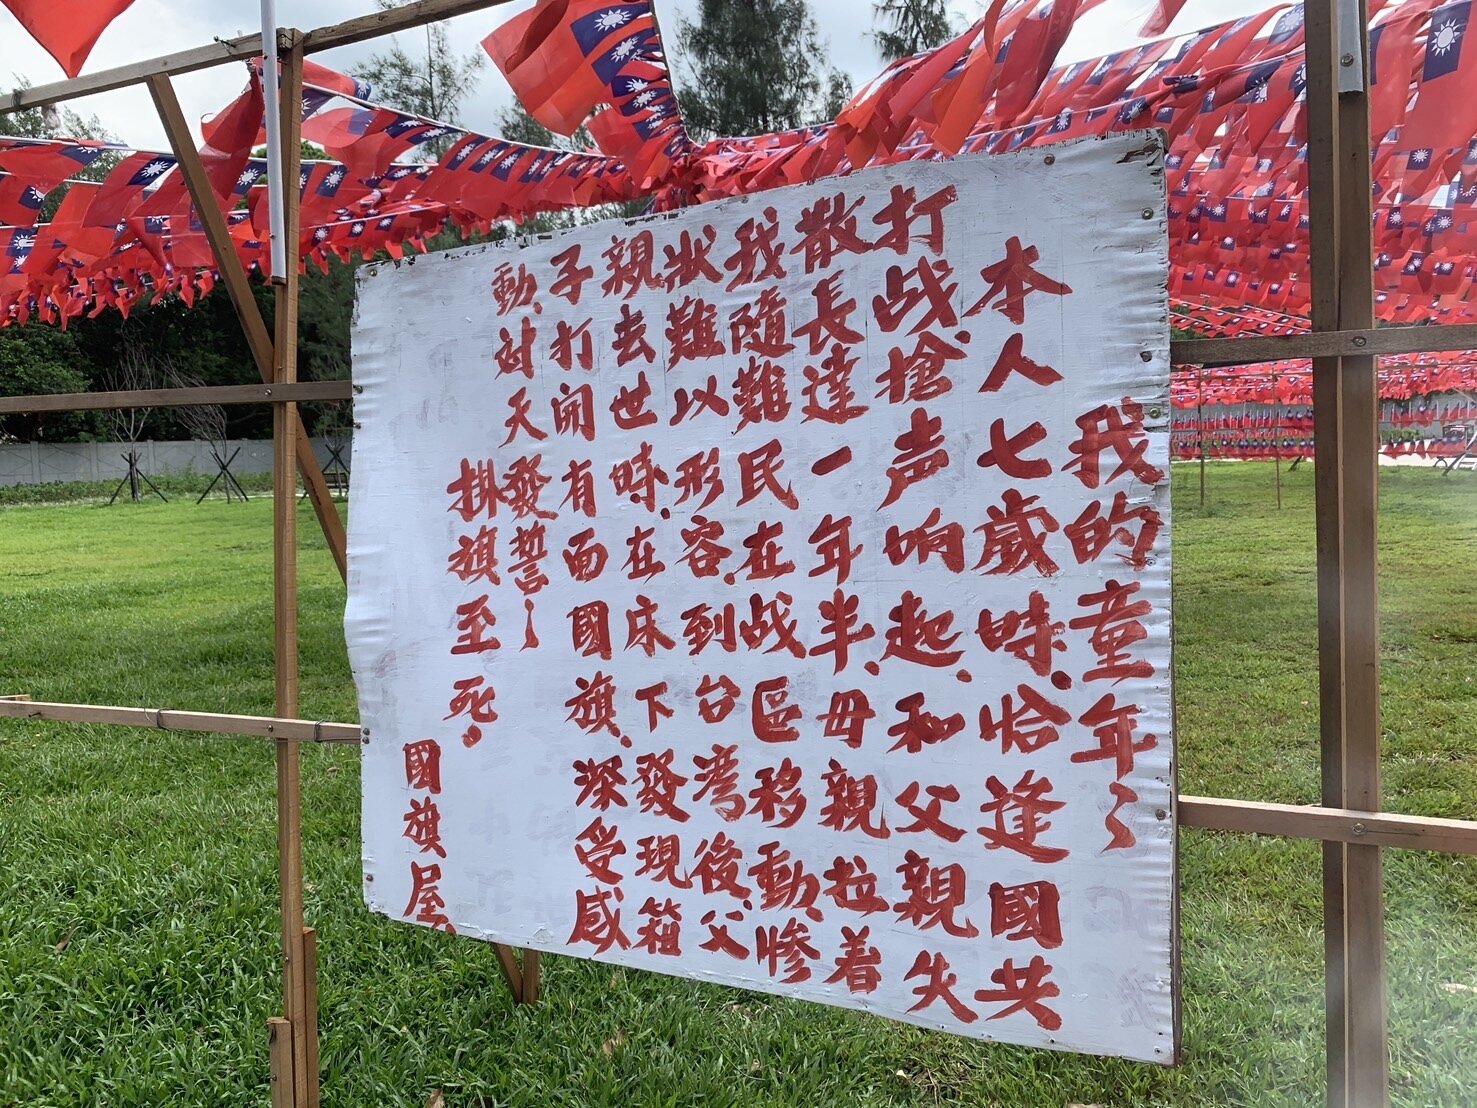 我的童年〻
本人七歲時.恰逢國共
打战.搶声响起.和父親失
散長達一年半.母親拉着
我隨難民在战區移動.慘
狀難以形容.到台湾後.父
親去世時.在床下發現箱
子打開有面國旗.深受感
動.対天發誓~
掛旗至死.
國旗屋